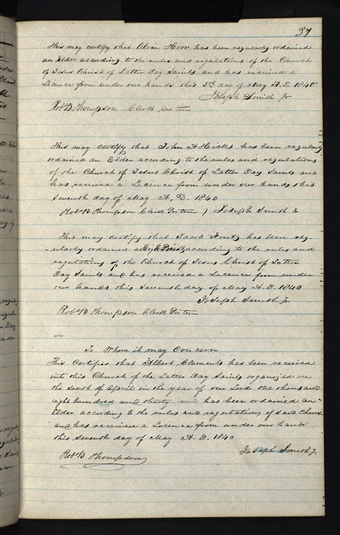 37
This may certify that Alvin Horr has been regularly ordained
an Elder according to the rules and regulations of the Church
of Jesus Christ of Latter Day Saints and has received a
Licence from under our hands this 5th day of May A.D. 1840
Joseph Smith Jr
Robt B. Thompson Clerk Pro tem
This may certify that John A Hicks has been regularly
ordained an Elder according to the rules and regulations
of the Church of Jesus Christ of Latter Day Saints and
has received a Licence from under our hands this
seventh day of May A.D. 1840
Robt B Thompson Clerk Protem Joseph Smith Jr
This may certify that Jacob has been reg
ularly ordained a High Priest according to the rules and
regulations of the Church of Jesus Christ of Latter
Day Saints and has received a Licence from under
our hands this seventh day of May A.D. 1840
Joseph Smith Jr
Robt B Thompson Clerk Protem
To Whom it may Concern
This Certifies that Albert Clements has been received
into this Church of the Latter Day Saints organized on
the Sixth of April in the year of our Lord One thousand
eight hundred and thirty and has been ordained an
Elder according to the rules and regulations of said Church
and has received a Licence from under our hands
this seventh day of May A.D. 1840
Joseph Smith Jr
Robt B. Thompson